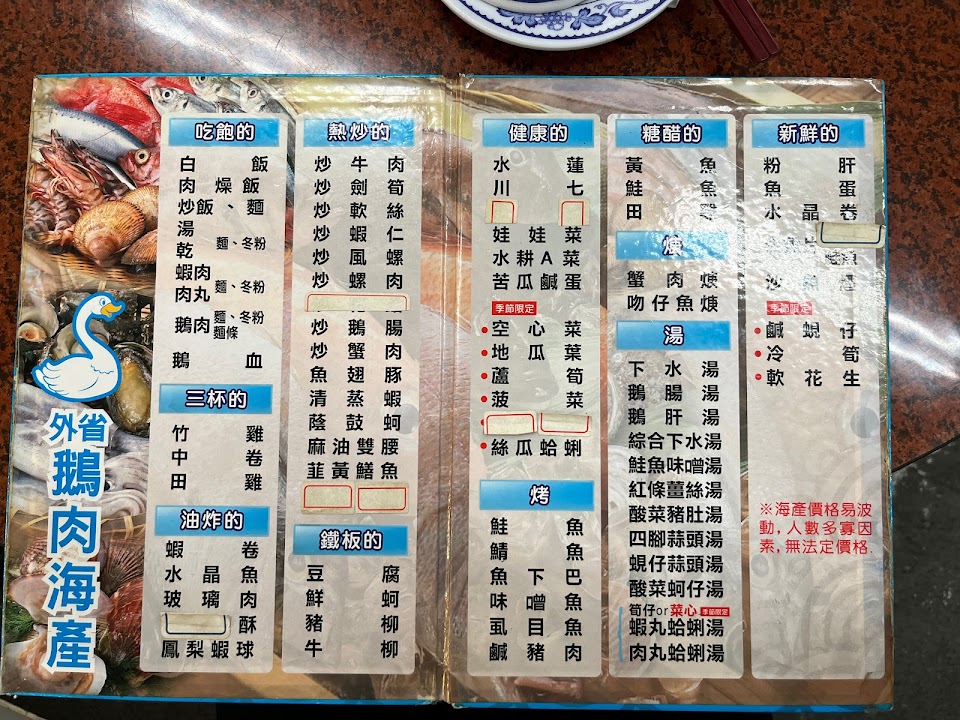 外省
鵝肉海產
吃飽的
白飯
肉燥飯
炒飯、麵
湯
乾
麵、冬粉
蝦肉
肉丸
麵、冬粉
鵝肉
麵、冬粉
麵條
鵝血
三杯的
竹雞
中卷
田雞
油炸的
蝦卷
水晶魚
玻璃肉
酥
鳳梨蝦球
熱炒的
炒牛肉
炒劍筍
炒軟絲
炒蝦仁
炒風螺
炒螺肉
炒鵝腸
炒蟹肉
魚翅豚
清蒸蝦
蔭鼓蚵
麻油雙腰
韮黃鱔魚
鐵板的
豆腐
鮮蚵
豬柳
牛柳
健康的
水蓮
川七
娃娃菜
水耕A菜
苦瓜鹹蛋
季節限定
空心菜
地瓜葉
蘆筍
菠菜
絲瓜蛤蜊
烤
鮭魚
鯖魚
魚下巴
味噌魚
虱目魚
鹹豬肉
糖醋的
黃魚
鮭魚
田雞
焿
蟹肉焿
吻仔魚焿
湯
下水湯
鵝腸湯
鵝肝湯
綜合下水湯
鮭魚味噌湯
紅條薑絲湯
酸菜豬肚湯
四腳蒜頭湯
蜆仔蒜頭湯
酸菜蚵仔湯
筍仔or菜心 季節限定
蝦丸蛤蜊湯
肉丸蛤蜊湯
新鮮的
粉肝
魚蛋
水晶卷
季節限定
鹹蜆仔
冷筍
軟花生
※海產價格易波
動，人數多寡因
素，無法定價格.